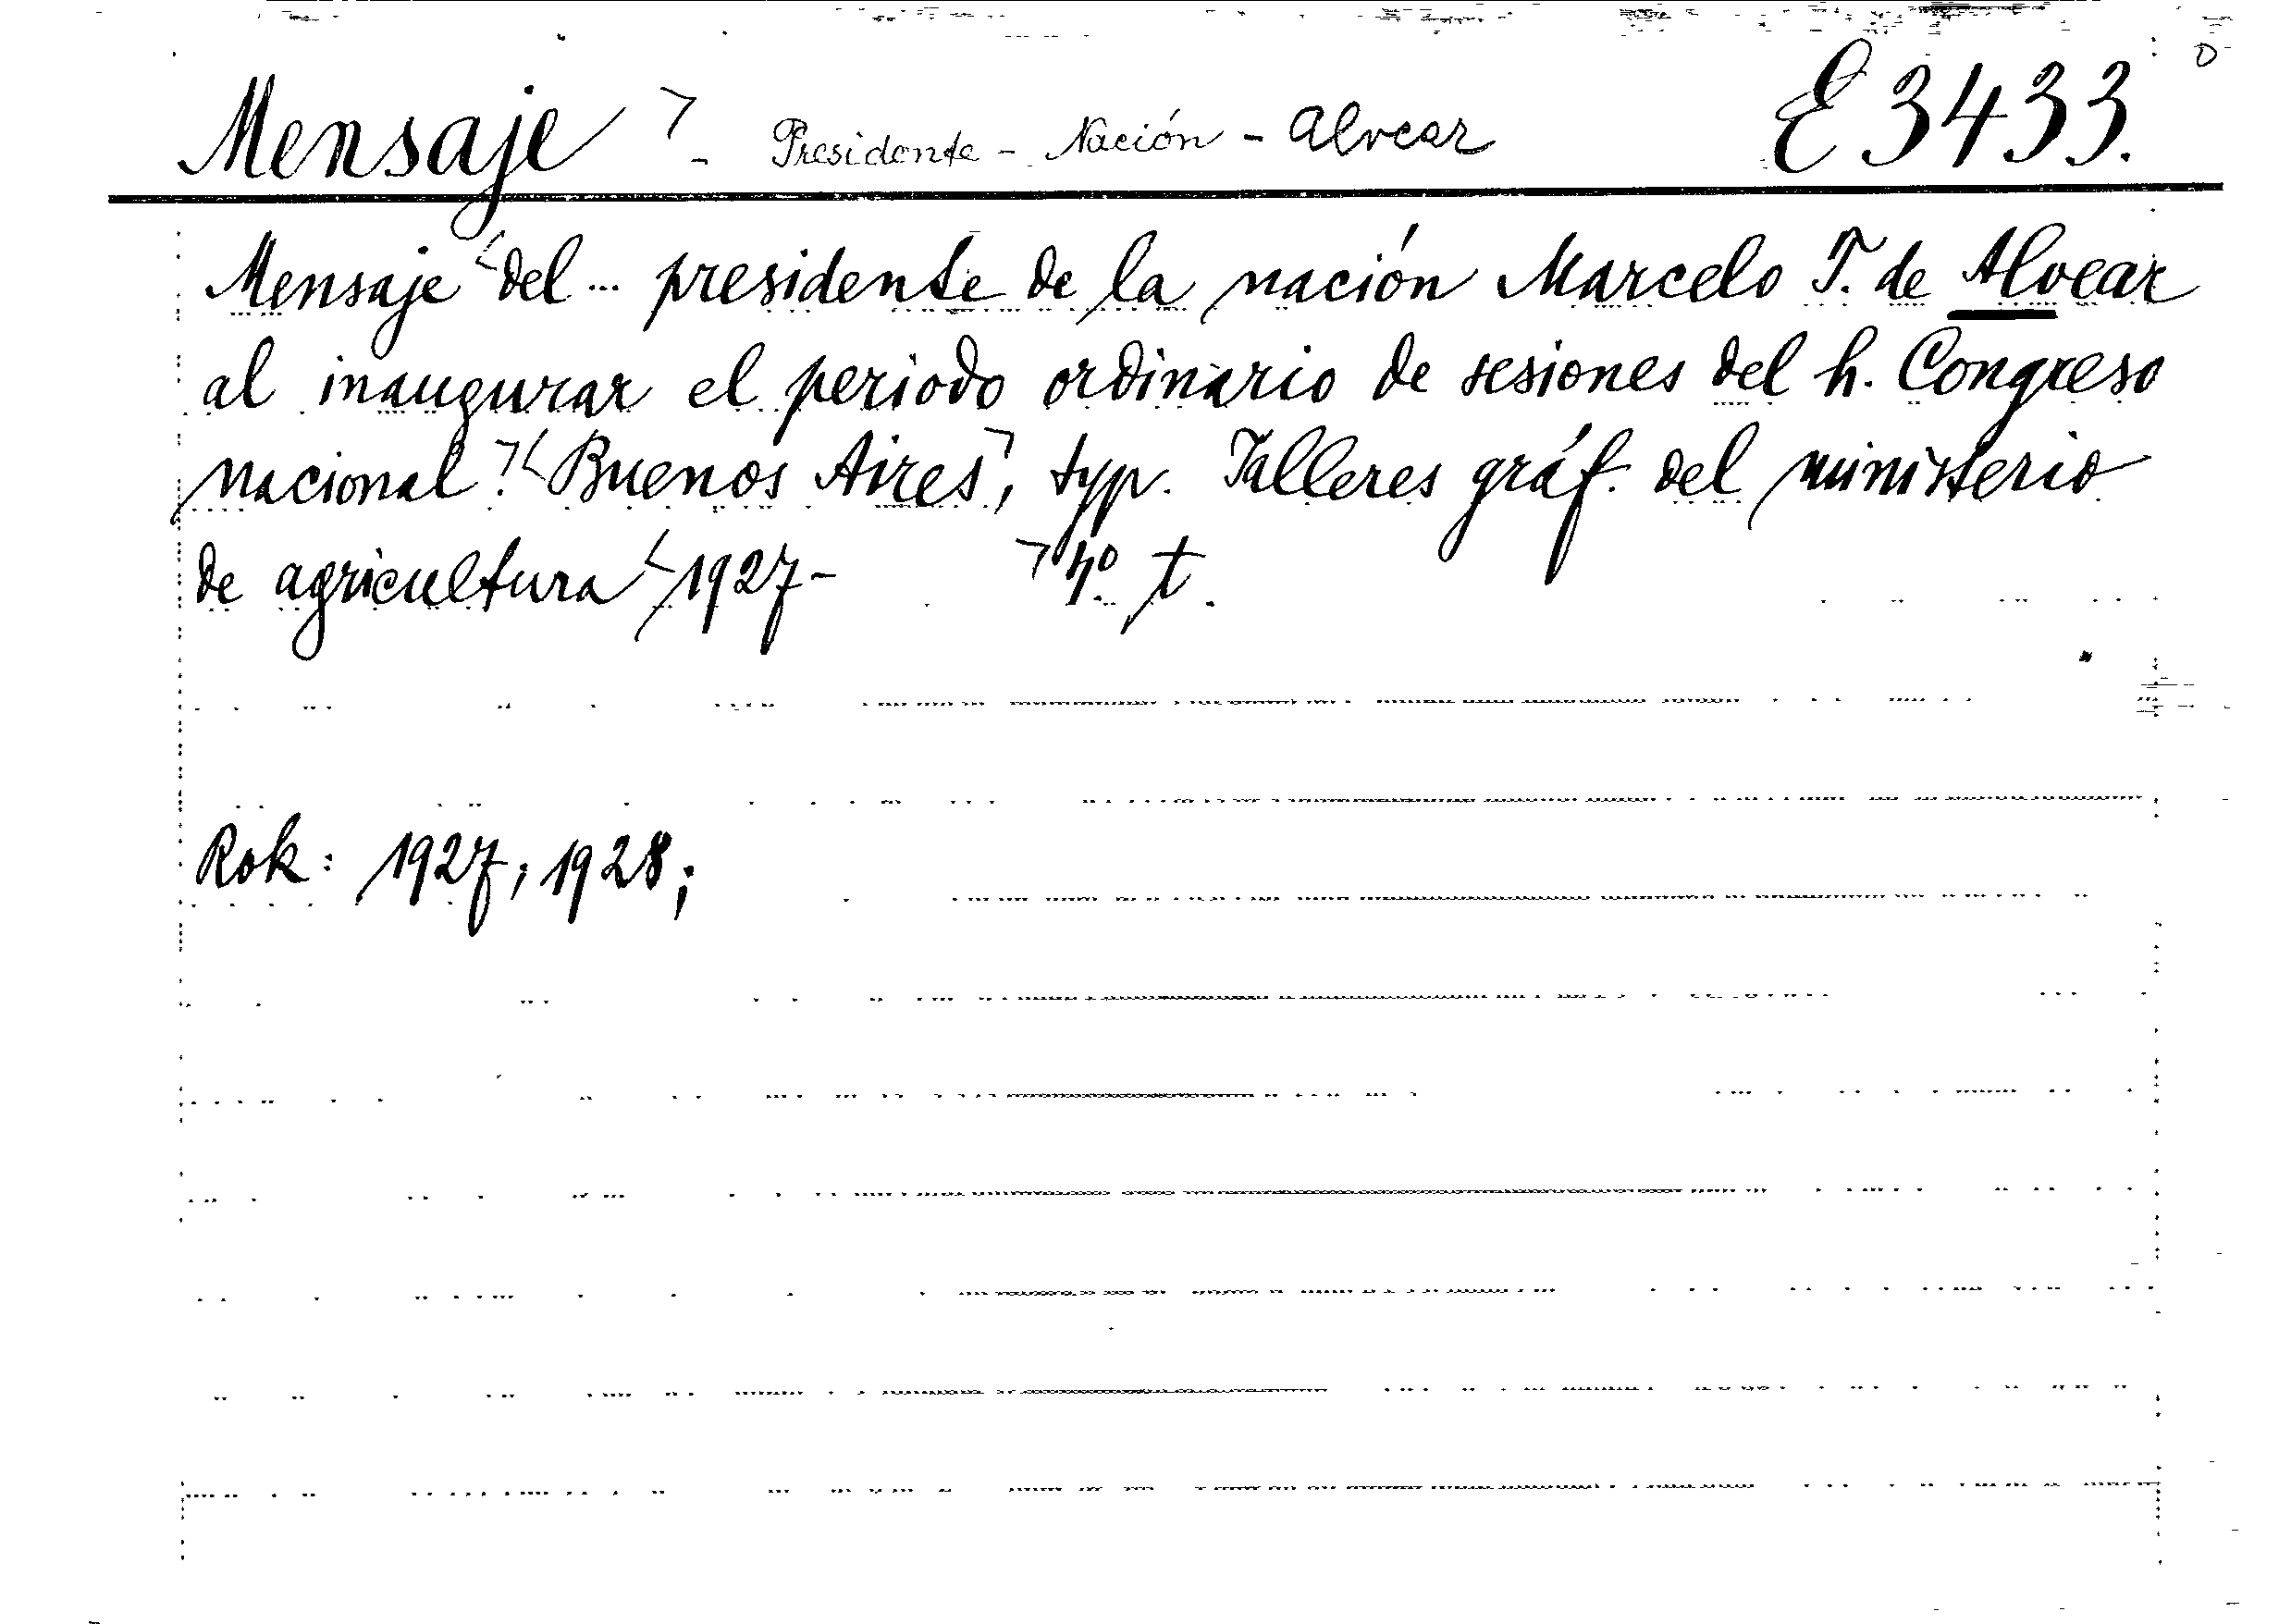 Mensaje - Presidente - Nación - Alvear E 3433.
Mensaje del ... presidente de la nación Marcelo T. de Alvear
al inaugurar el periodo ordinario de sesiones del h. Congreso
nacional. Buenos Aires, typ. Talleres gráf. del ministerio
de agricultura 1927- 4º t.
Rok: 1927; 1928;